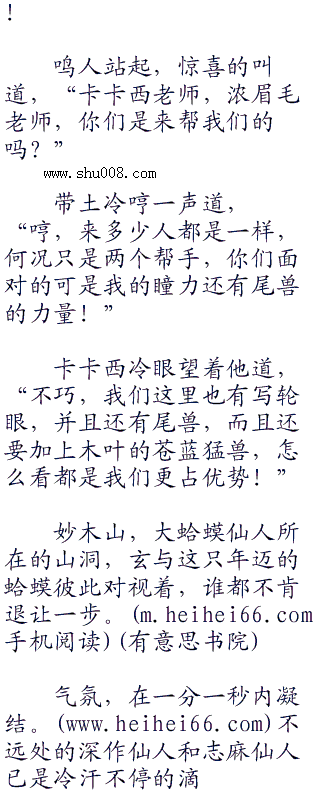 !
鸣人站起，惊喜的叫
道，“卡卡西老师，浓眉毛
老师，你们是来帮我们的
吗？”
www.shu008.com
带土冷哼一声道，
“哼，来多少人都是一样，
何况只是两个帮手，你们面
对的可是我的瞳力还有尾兽
的力量！”
卡卡西冷眼望着他道，
“不巧，我们这里也有写轮
眼，并且还有尾兽，而且还
要加上木叶的苍蓝猛兽，怎
么看都是我们更占优势！”
妙木山，大蛤蟆仙人所
在的山洞，玄与这只年迈的
蛤蟆彼此对视着，谁都不肯
退让一步。(m.heihei66.com
手机阅读)(有意思书院)
气氛，在一分一秒内凝
结。(www.heihei66.com)不
远处的深作仙人和志麻仙人
已是冷汗不停的滴